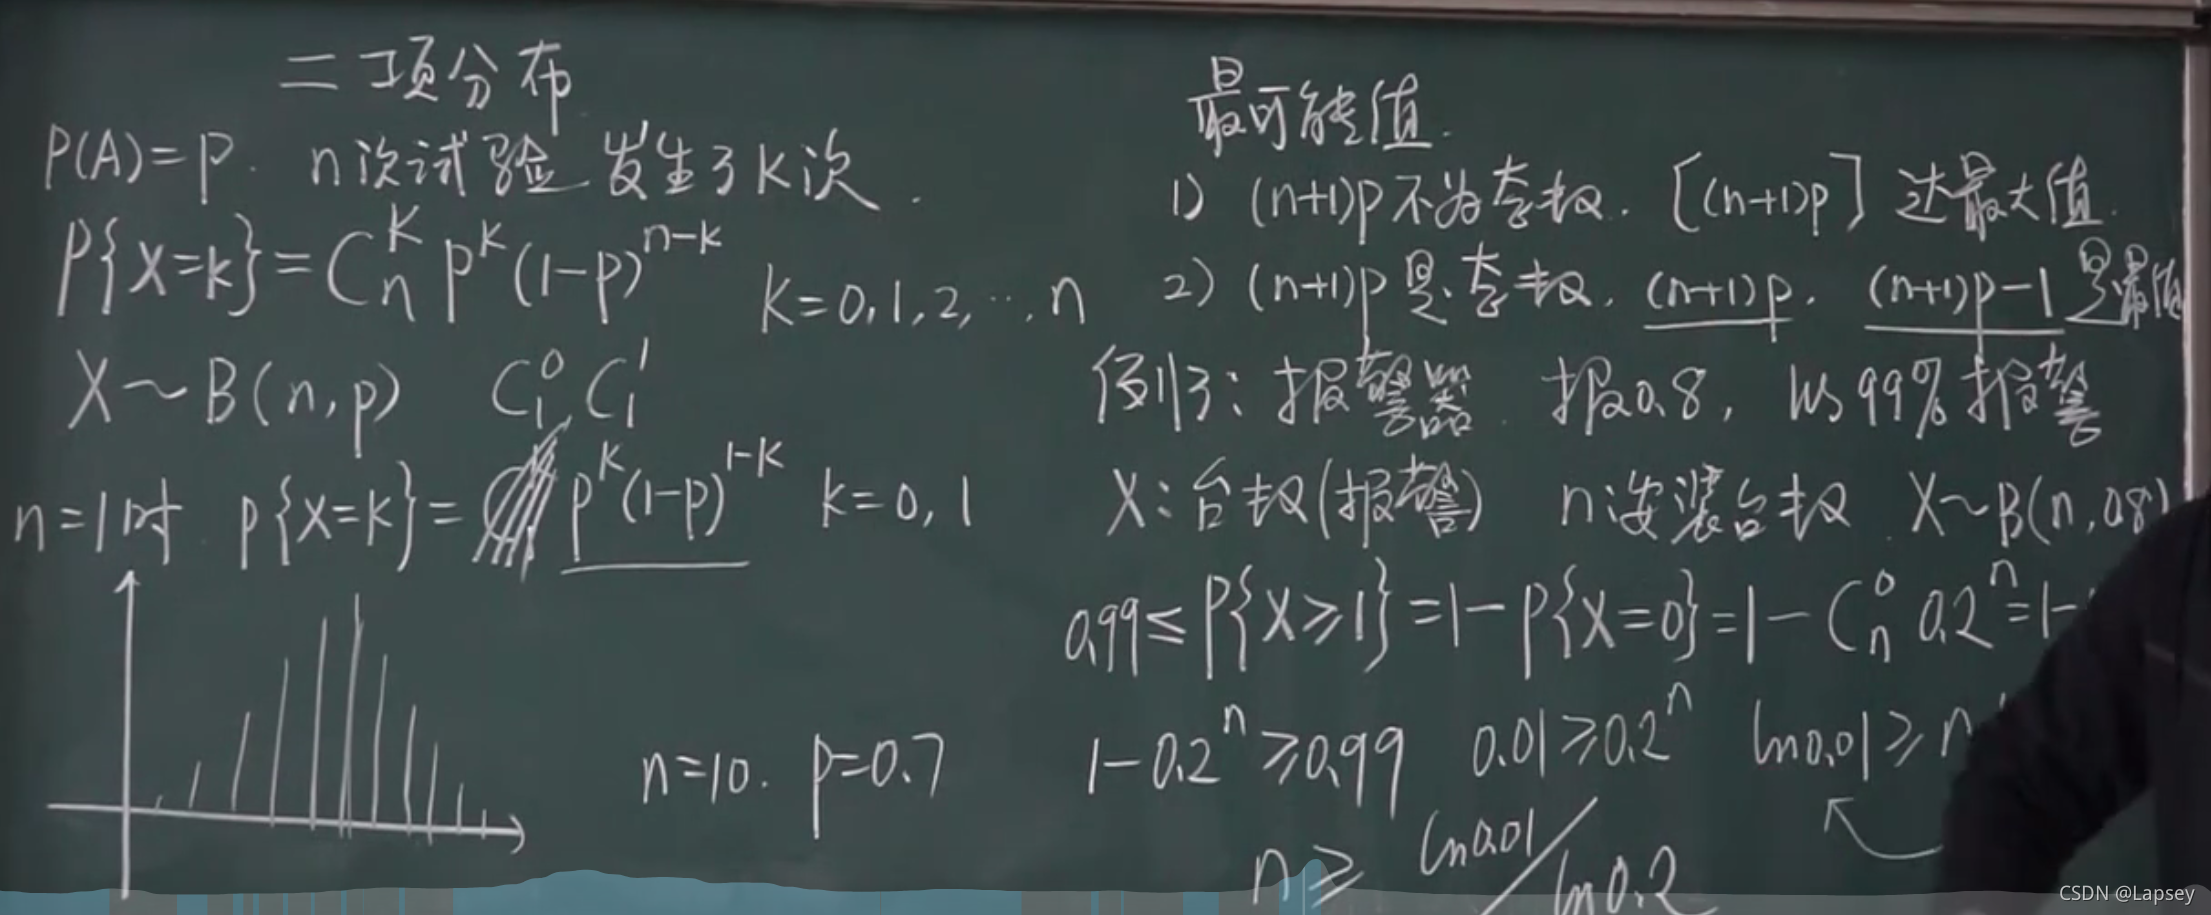 二项分布
P(A)=p. n次试验 发生了k次.
P{X=k}=C_n^k p^k (1-p)^{n-k} k=0,1,2,…,n
X~B(n,p) C_1^0 C_1^1
n=1时. P{X=k}= p^k (1-p)^{1-k} k=0,1
n=10. p=0.7
最可能值.
1) (n+1)p不为整数. [(n+1)p] 达最大值.
2) (n+1)p是整数. (n+1)p. (n+1)p-1 是最值
例3: 报警器. 报0.8, 以99%报警
X:台数(报警) n:安装台数. X~B(n,0.8)
0.99≤P{X≥1}=1-P{X=0}=1-C_n^0 0.2^n=1-
1-0.2^n≥0.99 0.01≥0.2^n ln0.01≥n
n≥ ln0.01/ln0.2
CSDN @Lapsey